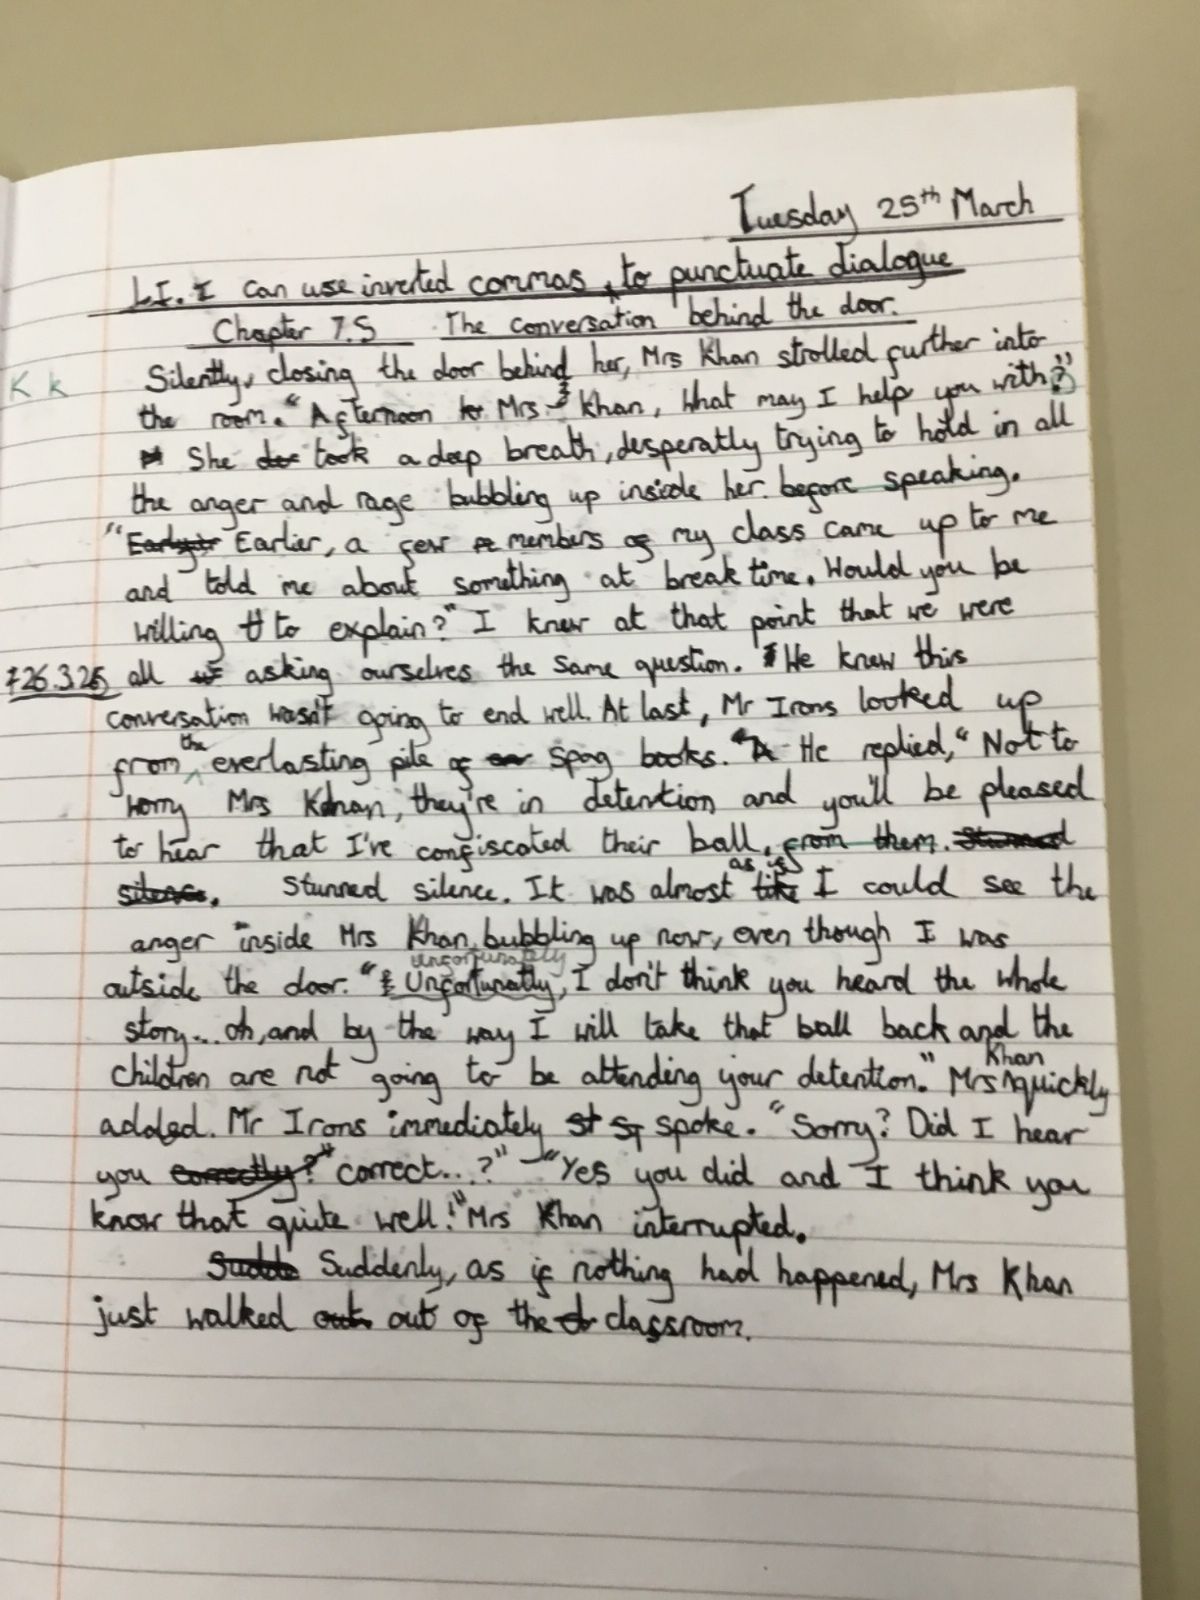 Tuesday 25th March
LI. I can use inverted commas, to punctuate dialogue
Chapter 7.5 The conversation behind the door.
K k Silently, closing the door behind her, Mrs Khan strolled further into
the room. "Afternoon Mrs Khan, what may I help you with?"
She took a deep breath, desperatly trying to hold in all
the anger and rage bubbling up inside her before speaking.
"Earlier, a few members of my class came up to me
and told me about something at break time. Would you be
willing to explain?" I knew at that point that we were
26.3.25 all asking ourselves the same question. He knew this
conversation wasn't going to end well. At last, Mr Irons looked up
from the everlasting pile of Spag books. He replied, "Not to
worry Mrs Khan, they're in detention and you'll be pleased
to hear that I've confiscated their ball, from them. Stunned
silence. Stunned silence. It was almost as if I could see the
anger inside Mrs Khan, bubbling up now, even though I was
unfortunately
outside the door. "Unfortunatly, I don't think you heard the whole
story... oh, and by the way I will take that ball back and the
children are not going to be attending your detention." Mrs Khan quickly
added. Mr Irons immediately spoke. "Sorry? Did I hear
you correctly?" correct...?" - "Yes you did and I think you
know that quite well!" Mrs Khan interrupted.
Suddenly, as if nothing had happened, Mrs Khan
just walked out of the classroom.